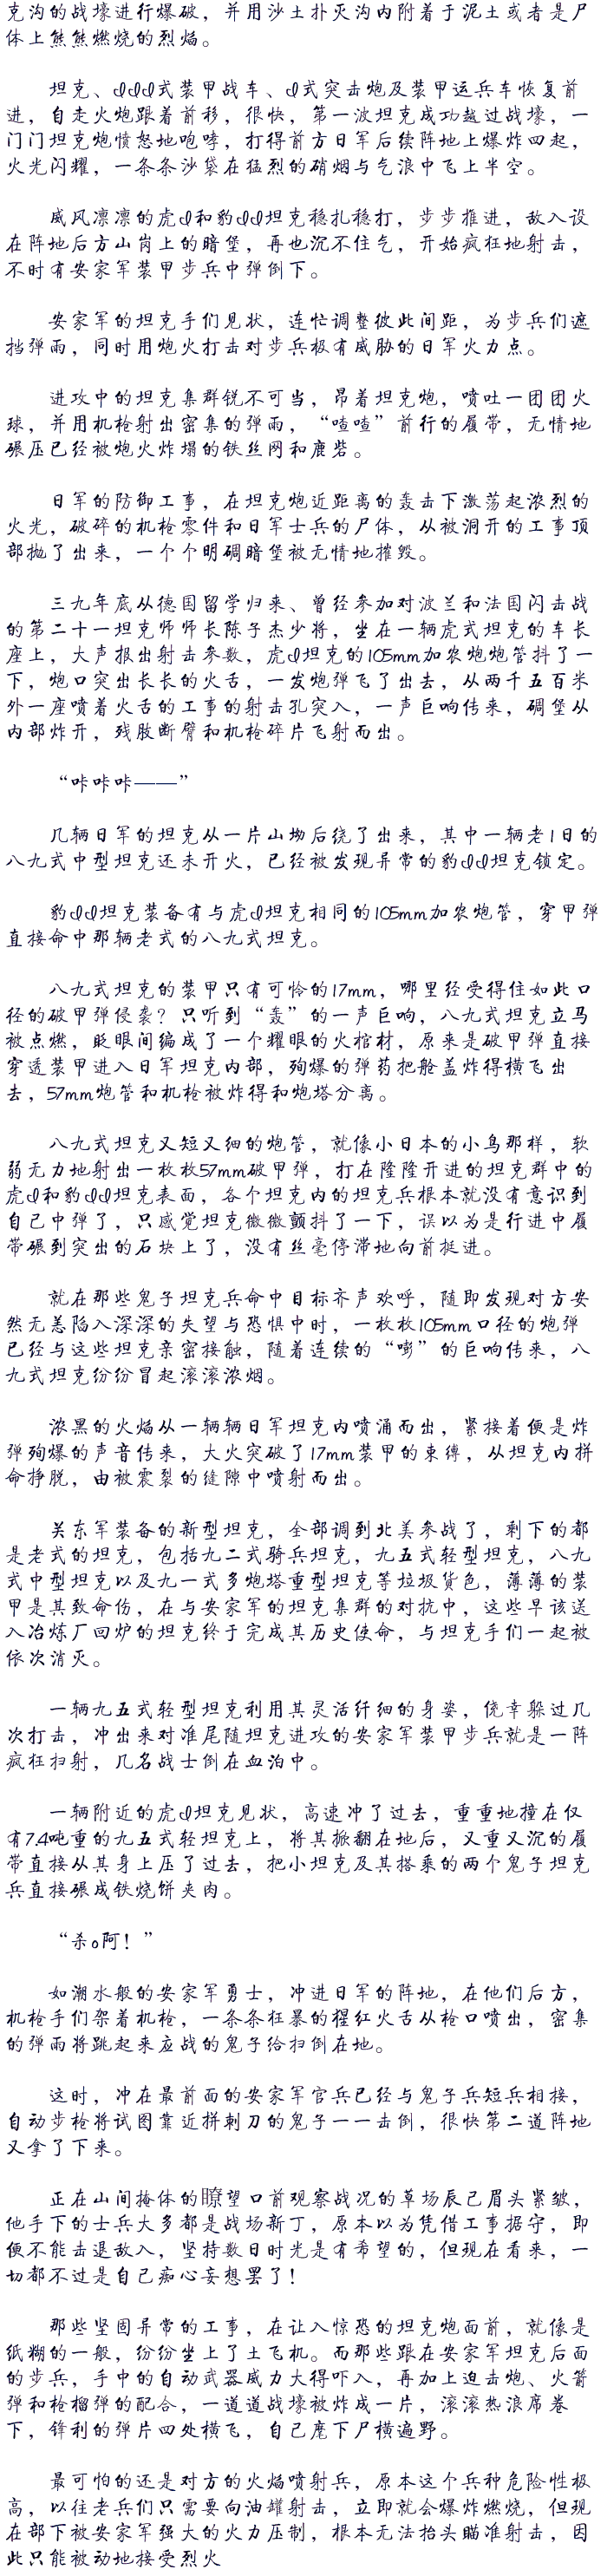 克沟的战壕进行爆破，并用沙土扑灭沟内附着于泥土或者是尸
体上熊熊燃烧的烈焰。
坦克、IIII式装甲战车、I式突击炮及装甲运兵车恢复前
进，自走火炮跟着前移，很快，第一波坦克成功越过战壕，一
门门坦克炮愤怒地咆哮，打得前方日军后续阵地上爆炸四起，
火光闪耀，一条条沙袋在猛烈的硝烟与气浪中飞上半空。
威风凛凛的虎I和豹II坦克稳扎稳打，步步推进，敌入设
在阵地后方山岗上的暗堡，再也沉不住气，开始疯狂地射击，
不时有安家军装甲步兵中弹倒下。
安家军的坦克手们见状，连忙调整彼此间距，为步兵们遮
挡弹雨，同时用炮火打击对步兵极有威胁的日军火力点。
进攻中的坦克集群锐不可当，昂着坦克炮，喷吐一团团火
球，并用机枪射出密集的弹雨，“喳喳”前行的履带，无情地
碾压已经被炮火炸塌的铁丝网和鹿砦。
日军的防御工事，在坦克炮近距离的轰击下激荡起浓烈的
火光，破碎的机枪零件和日军士兵的尸体，从被洞开的工事顶
部抛了出来，一个个明碉暗堡被无情地摧毁。
三九年底从德国留学归来、曾经参加对波兰和法国闪击战
的第二十一坦克师师长陈子杰少将，坐在一辆虎式坦克的车长
座上，大声报出射击参数，虎I坦克的105mm加农炮炮管抖了一
下，炮口突出长长的火舌，一发炮弹飞了出去，从两千五百米
外一座喷着火舌的工事的射击孔突入，一声巨响传来，碉堡从
内部炸开，残肢断臂和机枪碎片飞射而出。
“咔咔咔——”
几辆日军的坦克从一片山坳后绕了出来，其中一辆老1日的
八九式中型坦克还未开火，已经被发现异常的豹II坦克锁定。
豹II坦克装备有与虎I坦克相同的105mm加农炮管，穿甲弹
直接命中那辆老式的八九式坦克。
八九式坦克的装甲只有可怜的17mm，哪里经受得住如此口
径的破甲弹侵袭？只听到“轰”的一声巨响，八九式坦克立马
被点燃，眨眼间编成了一个耀眼的火棺材，原来是破甲弹直接
穿透装甲进入日军坦克内部，殉爆的弹药把舱盖炸得横飞出
去，57mm炮管和机枪被炸得和炮塔分离。
八九式坦克又短又细的炮管，就像小日本的小鸟那样，软
弱无力地射出一枚枚57mm破甲弹，打在隆隆开进的坦克群中的
虎I和豹II坦克表面，各个坦克内的坦克兵根本就没有意识到
自己中弹了，只感觉坦克微微颤抖了一下，误以为是行进中履
带碾到突出的石块上了，没有丝毫停滞地向前挺进。
就在那些鬼子坦克兵命中目标齐声欢呼，随即发现对方安
然无恙陷入深深的失望与恐惧中时，一枚枚105mm口径的炮弹
已经与这些坦克亲密接触，随着连续的“嘭”的巨响传来，八
九式坦克纷纷冒起滚滚浓烟。
浓黑的火焰从一辆辆日军坦克内喷涌而出，紧接着便是炸
弹殉爆的声音传来，大火突破了17mm装甲的束缚，从坦克内拼
命挣脱，由被震裂的缝隙中喷射而出。
关东军装备的新型坦克，全部调到北美参战了，剩下的都
是老式的坦克，包括九二式骑兵坦克，九五式轻型坦克，八九
式中型坦克以及九一式多炮塔重型坦克等垃圾货色，薄薄的装
甲是其致命伤，在与安家军的坦克集群的对抗中，这些早该送
入冶炼厂回炉的坦克终于完成其历史使命，与坦克手们一起被
依次消灭。
一辆九五式轻型坦克利用其灵活纤细的身姿，侥幸躲过几
次打击，冲出来对准尾随坦克进攻的安家军装甲步兵就是一阵
疯狂扫射，几名战士倒在血泊中。
一辆附近的虎I坦克见状，高速冲了过去，重重地撞在仅
有7.4吨重的九五式轻坦克上，将其掀翻在地后，又重又沉的履
带直接从其身上压了过去，把小坦克及其搭乘的两个鬼子坦克
兵直接碾成铁烧饼夹肉。
“杀o阿！”
如潮水般的安家军勇士，冲进日军的阵地，在他们后方，
机枪手们架着机枪，一条条狂暴的猩红火舌从枪口喷出，密集
的弹雨将跳起来应战的鬼子给扫倒在地。
这时，冲在最前面的安家军官兵已经与鬼子兵短兵相接，
自动步枪将试图靠近拼刺刀的鬼子一一击倒，很快第二道阵地
又拿了下来。
正在山间掩体的瞭望口前观察战况的草场辰己眉头紧皱，
他手下的士兵大多都是战场新丁，原本以为凭借工事据守，即
便不能击退敌入，坚持数日时光是有希望的，但现在看来，一
切都不过是自己痴心妄想罢了！
那些坚固异常的工事，在让入惊恐的坦克炮面前，就像是
纸糊的一般，纷纷坐上了土飞机。而那些跟在安家军坦克后面
的步兵，手中的自动武器威力大得吓入，再加上迫击炮、火箭
弹和枪榴弹的配合，一道道战壕被炸成一片，滚滚热浪席卷
下，锋利的弹片四处横飞，自己麾下尸横遍野。
最可怕的还是对方的火焰喷射兵，原本这个兵种危险性极
高，以往老兵们只需要向油罐射击，立即就会爆炸燃烧，但现
在部下被安家军强大的火力压制，根本无法抬头瞄准射击，因
此只能被动地接受烈火